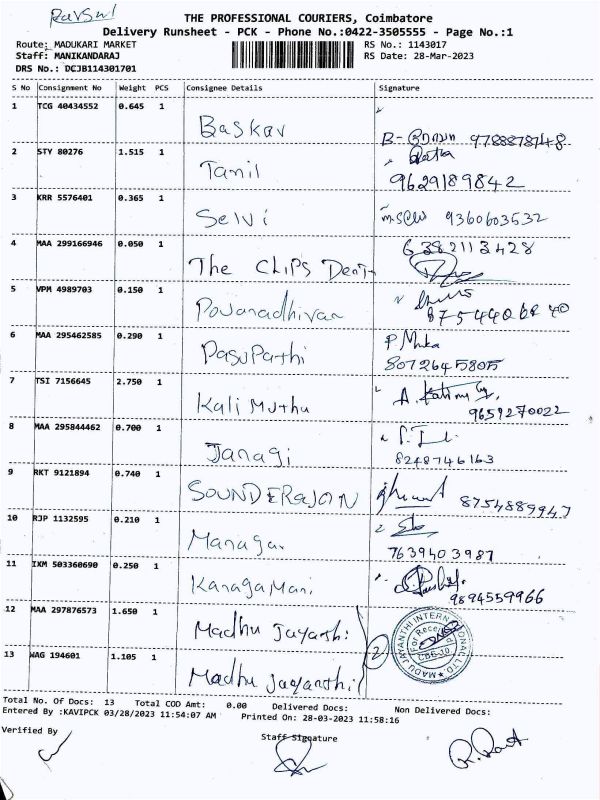 THE PROFESSIONAL COURIERS, Coimbatore
Delivery Runsheet - PCK - Phone No.:0422-3505555 - Page No.:1
Route: MADUKARI MARKET RS No.: 1143017
Staff: MANIKANDARAJ RS Date: 28-Mar-2023
DRS No.: DCJB114301701
S No Consignment No Weight PCS Consignee Details Signature
1 TCG 40434552 0.645 1 Baskar
2 STY 80276 1.515 1 Tamil
9629189842
3 KRR 5576401 0.365 1 Selvi 9360603532
4 MAA 299166946 0.050 1 The CLIPS Dent 6382113428
5 VPM 4989703 0.150 1
6 MAA 295462585 0.290 1 Pasupathi
8072645805
7 TSI 7156645 2.750 1 Kali Muthu
9659270022
8 MAA 295844462 0.700 1 Janagi
8248746163
9 RKT 9121894 0.740 1 SOUNDERAJAN 8754889947
10 RJP 1132595 0.210 1
7639403987
11 IXM 503360690 0.250 1 KanagaMani
9894559966
12 MAA 297876573 1.650 1 Madhu Jayanthi
13 WAG 194601 1.105 1 Madhu Jayanthi 2
MADU JAYANTHI INTERNATIONAL LTD.
For Received
CBE-10
Total No. Of Docs: 13 Total COD Amt: 0.00 Delivered Docs: Non Delivered Docs:
Entered By :KAVIPCK 03/28/2023 11:54:07 AM Printed On: 28-03-2023 11:58:16
Verified By Staff Signature